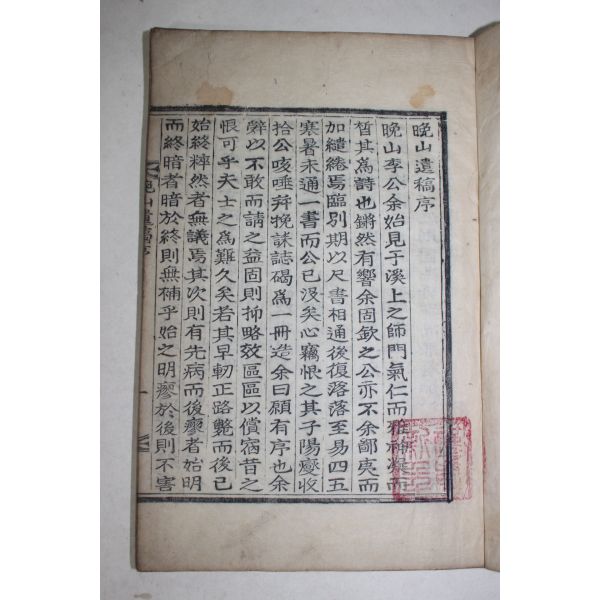 晩山遺稿序
晩山李公余始見于溪上之師門氣仁而雅神凝而
晳其爲詩也鏘然有響余固欽之公亦不余鄙夷而
加繾綣焉臨別期以尺書相通後復落落至易四五
寒暑未通一書而公已沒矣心竊恨之其子陽燮收
拾公咳唾幷挽誄誌碣爲一冊造余曰願有序也余
辭以不敢而請之益固則抑略效區區以償宿昔之
恨可乎夫士之爲難久矣若其早軔正路斃而後已
始終粹然者無議焉其次則有先病而後瘳者始明
而終暗者暗於終則無補乎始之明瘳於後則不害
晩山遺稿序
一